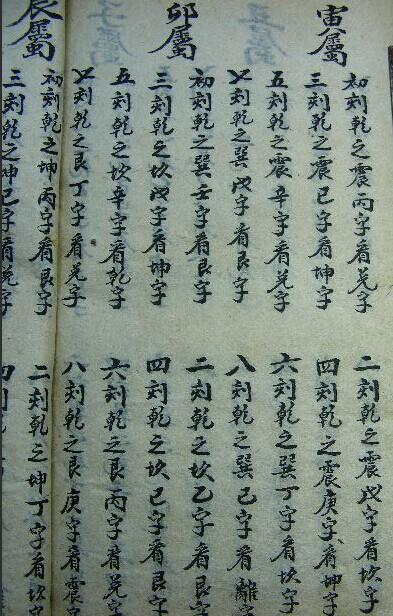 寅屬
初刻乾之震丙字看兑字
二刻乾之震戊字看坎字
三刻乾之震已字看坤字
四刻乾之震庚字看坤字
五刻乾之震辛字看兑字
六刻乾之巽丁字看坎字
七刻乾之巽戊字看艮字
八刻乾之巽已字看離字
卯屬
初刻乾之巽壬字看艮字
二刻乾之坎乙字看艮字
三刻乾之坎戊字看坤字
四刻乾之坎已字看艮字
五刻乾之坎辛字看乾字
六刻乾之艮丙字看兑字
七刻乾之艮丁字看兑字
八刻乾之艮庚字看震字
辰屬
初刻乾之坤丙字看艮字
二刻乾之坤丁字看坎字
三刻乾之坤已字看兑字
四刻